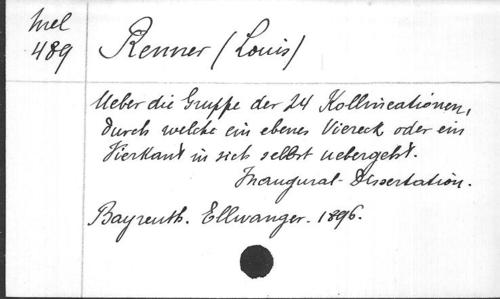 Mel
489
Renner (Louis)
Ueber die Gruppe der 24 Kollineationen,
durch welche ein ebenes Viereck oder ein
Vierkant in sich selbst uebergeht.
Inaugural-Dissertation.
Bayreuth. Ellwanger. 1896.